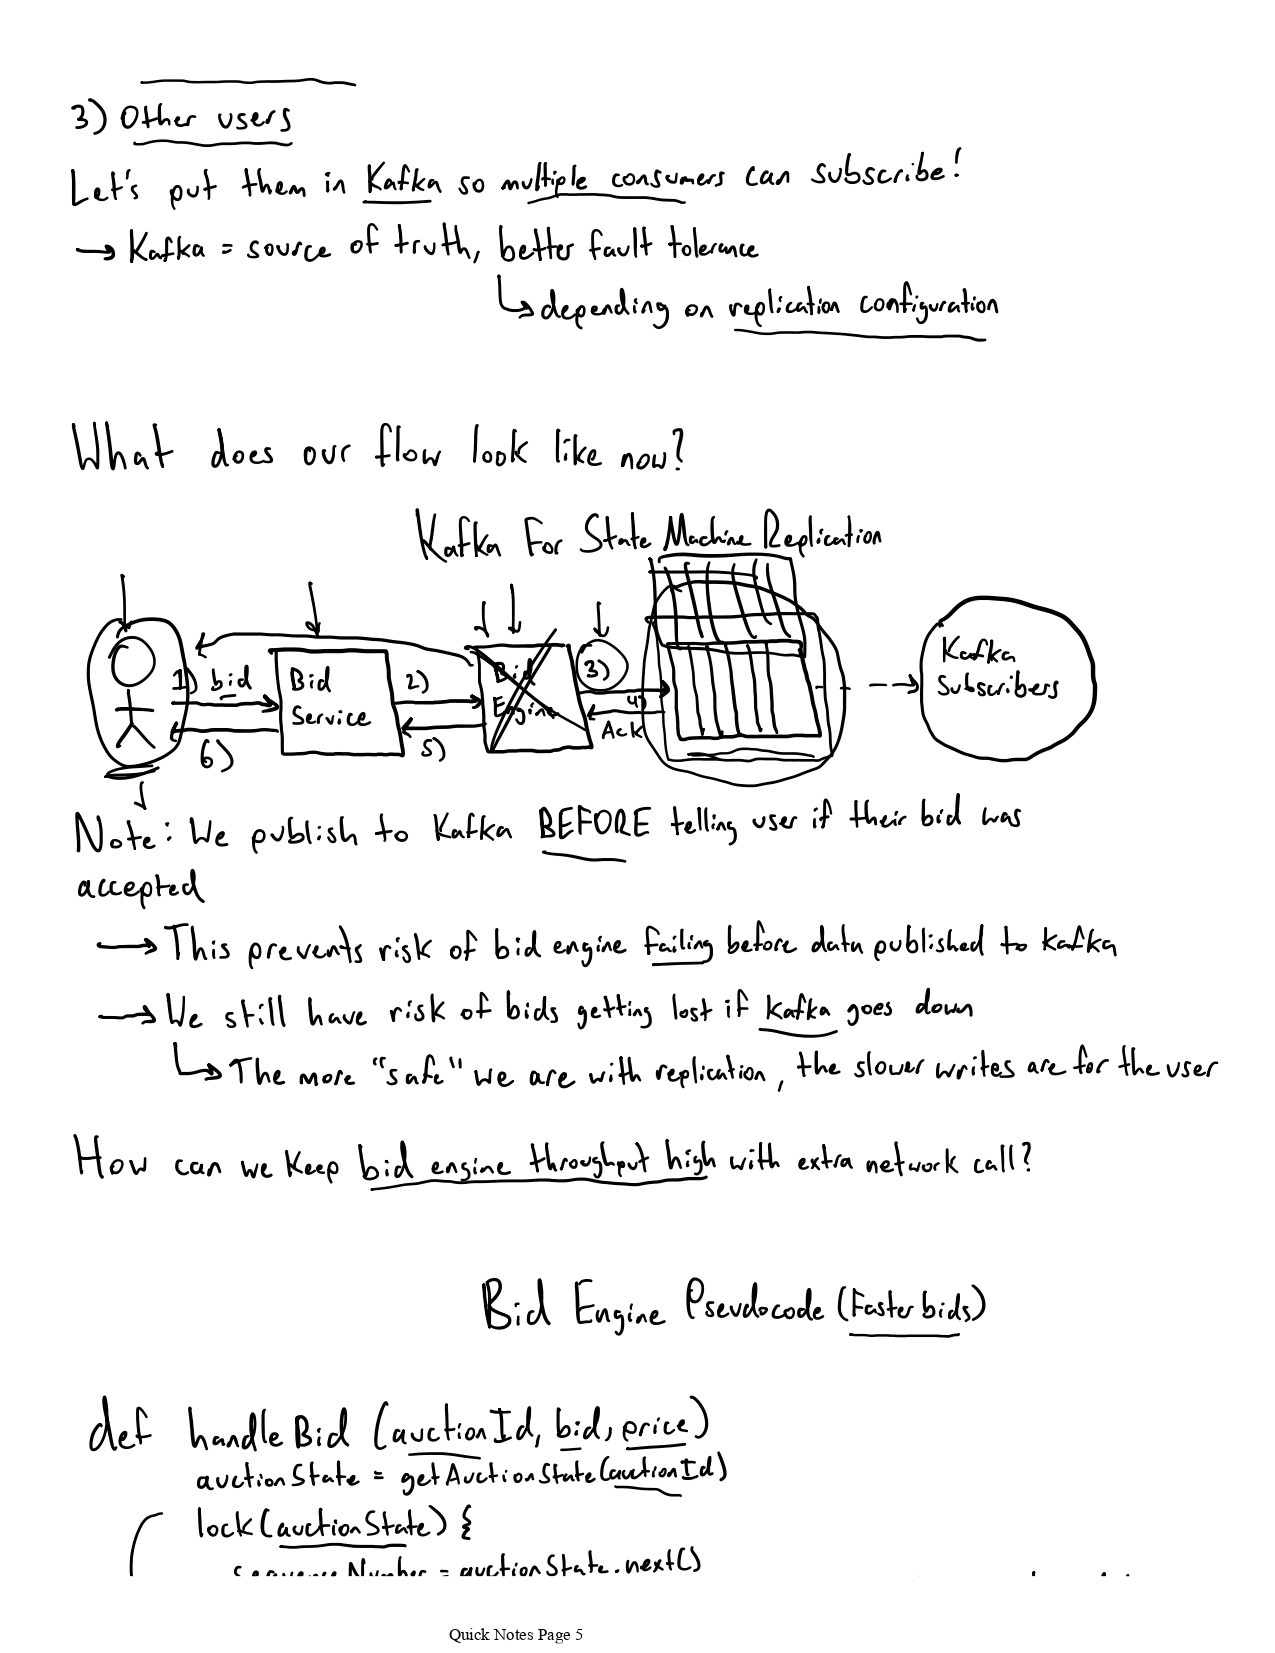 3) Other users
Let's put them in Kafka so multiple consumers can subscribe!
→ Kafka = source of truth, better fault tolerance
↳ depending on replication configuration
What does our flow look like now?
Kafka For State Machine Replication
1) bid
Bid
Service
2)
Bid
Engine
3)
4)
Ack
5)
6)
Kafka
Subscribers
Note: We publish to Kafka BEFORE telling user if their bid was
accepted
→ This prevents risk of bid engine failing before data published to Kafka
→ We still have risk of bids getting lost if Kafka goes down
↳ The more "safe" we are with replication, the slower writes are for the user
How can we keep bid engine throughput high with extra network call?
Bid Engine Pseudocode (Faster bids)
def handleBid (auctionId, bid, price)
auctionState = getAuctionState(auctionId)
lock(auctionState) {
sequenceNumber = auctionState.next()
Quick Notes Page 5